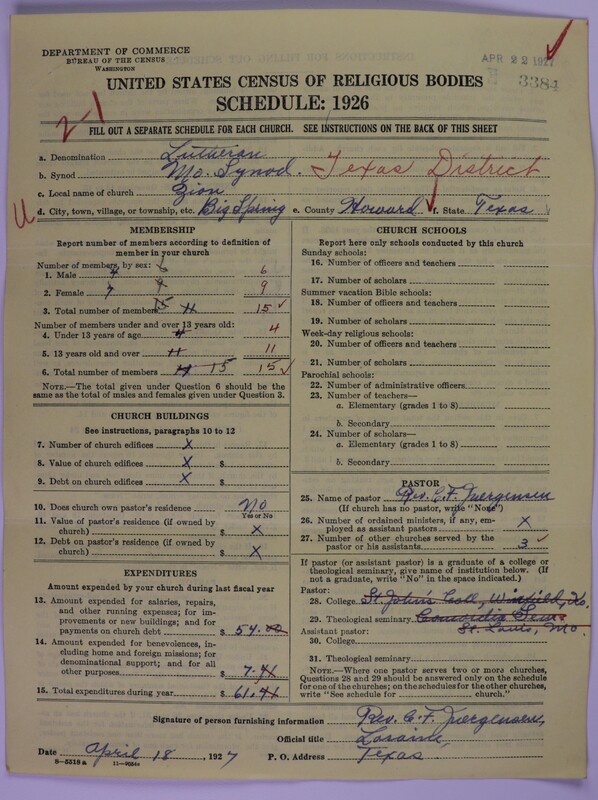 DEPARTMENT OF COMMERCE
BUREAU OF THE CENSUS
WASHINGTON
APR 22 1927
3384
UNITED STATES CENSUS OF RELIGIOUS BODIES
SCHEDULE: 1926
2-1
FILL OUT A SEPARATE SCHEDULE FOR EACH CHURCH. SEE INSTRUCTIONS ON THE BACK OF THIS SHEET
a. Denomination Lutheran
b. Synod Mo. Synod. Texas District
c. Local name of church Zion
U
d. City, town, village, or township, etc. Big Spring e. County Howard f. State Texas
MEMBERSHIP
Report number of members according to definition of
member in your church
Number of members, by sex:
1. Male 4 6 6
2. Female 7 9 9
3. Total number of members 15 11 15
Number of members under and over 13 years old:
4. Under 13 years of age 4 4
5. 13 years old and over 11 11
6. Total number of members 11 15 15
NOTE.—The total given under Question 6 should be the
same as the total of males and females given under Question 3.
CHURCH BUILDINGS
See instructions, paragraphs 10 to 12
7. Number of church edifices X
8. Value of church edifices X $
9. Debt on church edifices X $
10. Does church own pastor's residence? No
Yes or No
11. Value of pastor's residence (if owned by
church) $ X
12. Debt on pastor's residence (if owned by
church) $ X
EXPENDITURES
Amount expended by your church during last fiscal year
13. Amount expended for salaries, repairs,
and other running expenses; for im-
provements or new buildings; and for
payments on church debt $ 54.00
14. Amount expended for benevolences, in-
cluding home and foreign missions; for
denominational support; and for all
other purposes $ 7.41
15. Total expenditures during year $ 61.41
CHURCH SCHOOLS
Report here only schools conducted by this church
Sunday schools:
16. Number of officers and teachers
17. Number of scholars
Summer vacation Bible schools:
18. Number of officers and teachers
19. Number of scholars
Week-day religious schools:
20. Number of officers and teachers
21. Number of scholars
Parochial schools:
22. Number of administrative officers
23. Number of teachers—
a. Elementary (grades 1 to 8)
b. Secondary
24. Number of scholars—
a. Elementary (grades 1 to 8)
b. Secondary
PASTOR
25. Name of pastor Rev. C. F. Juergensen
(If church has no pastor, write "None")
26. Number of ordained ministers, if any, em-
ployed as assistant pastors X
27. Number of other churches served by the
pastor or his assistants 3
If pastor (or assistant pastor) is a graduate of a college or
theological seminary, give name of institution below. (If
not a graduate, write "No" in the space indicated.)
Pastor:
28. College St. John's Coll., Winfield, Ks.
29. Theological seminary Concordia Sem.
Assistant pastor: St. Louis, Mo.
30. College
31. Theological seminary
NOTE.—Where one pastor serves two or more churches,
Questions 28 and 29 should be answered only on the schedule
for one of the churches; on the schedules for the other churches,
write "See schedule for church."
Signature of person furnishing information Rev. C. F. Juergensen,
Official title Loraine,
Date April 18, 1927 P. O. Address Texas
8-5518a